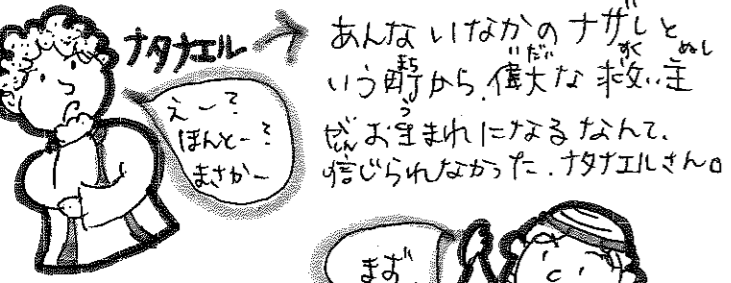 ナタナエル
えー？
ほんとー？
まさかー
あんないなかのナザレと
いう町から、偉大な救い主
がお生まれになるなんて、
信じられなかった、ナタナエルさん。
まず